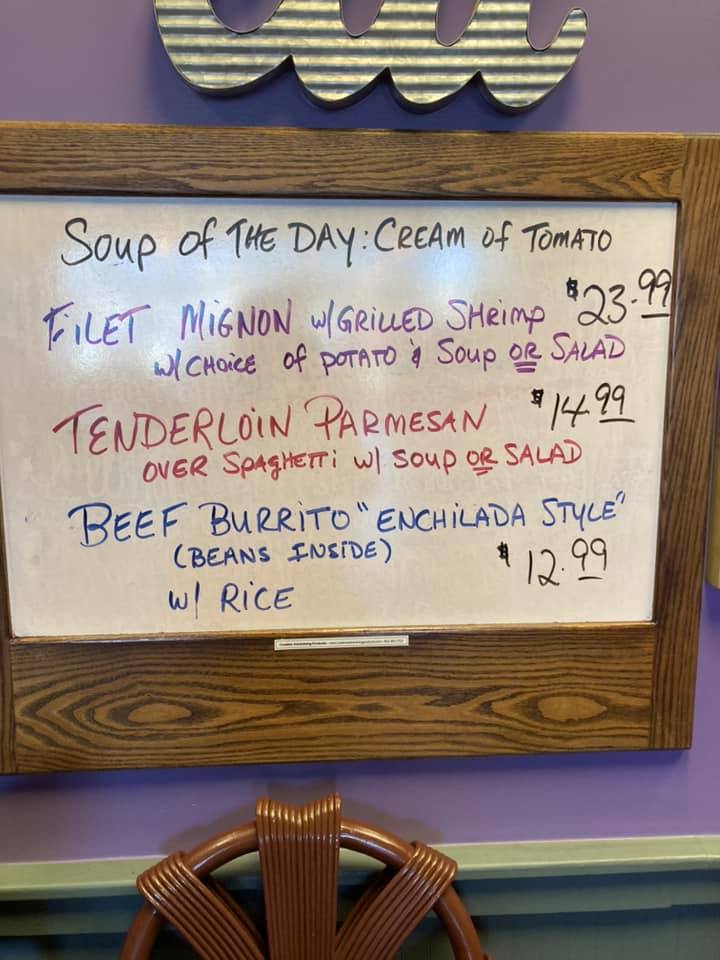 Soup of THE DAY: CREAM of TOMATO
FILET MIGNON w/GRILLED SHRIMP $23.99
w/CHOICE of POTATO & Soup OR SALAD
TENDERLOIN PARMESAN $14.99
OVER SPAGHETTI w/ SOUP OR SALAD
BEEF BURRITO "ENCHILADA STYLE"
(BEANS INSIDE) $12.99
w/ RICE